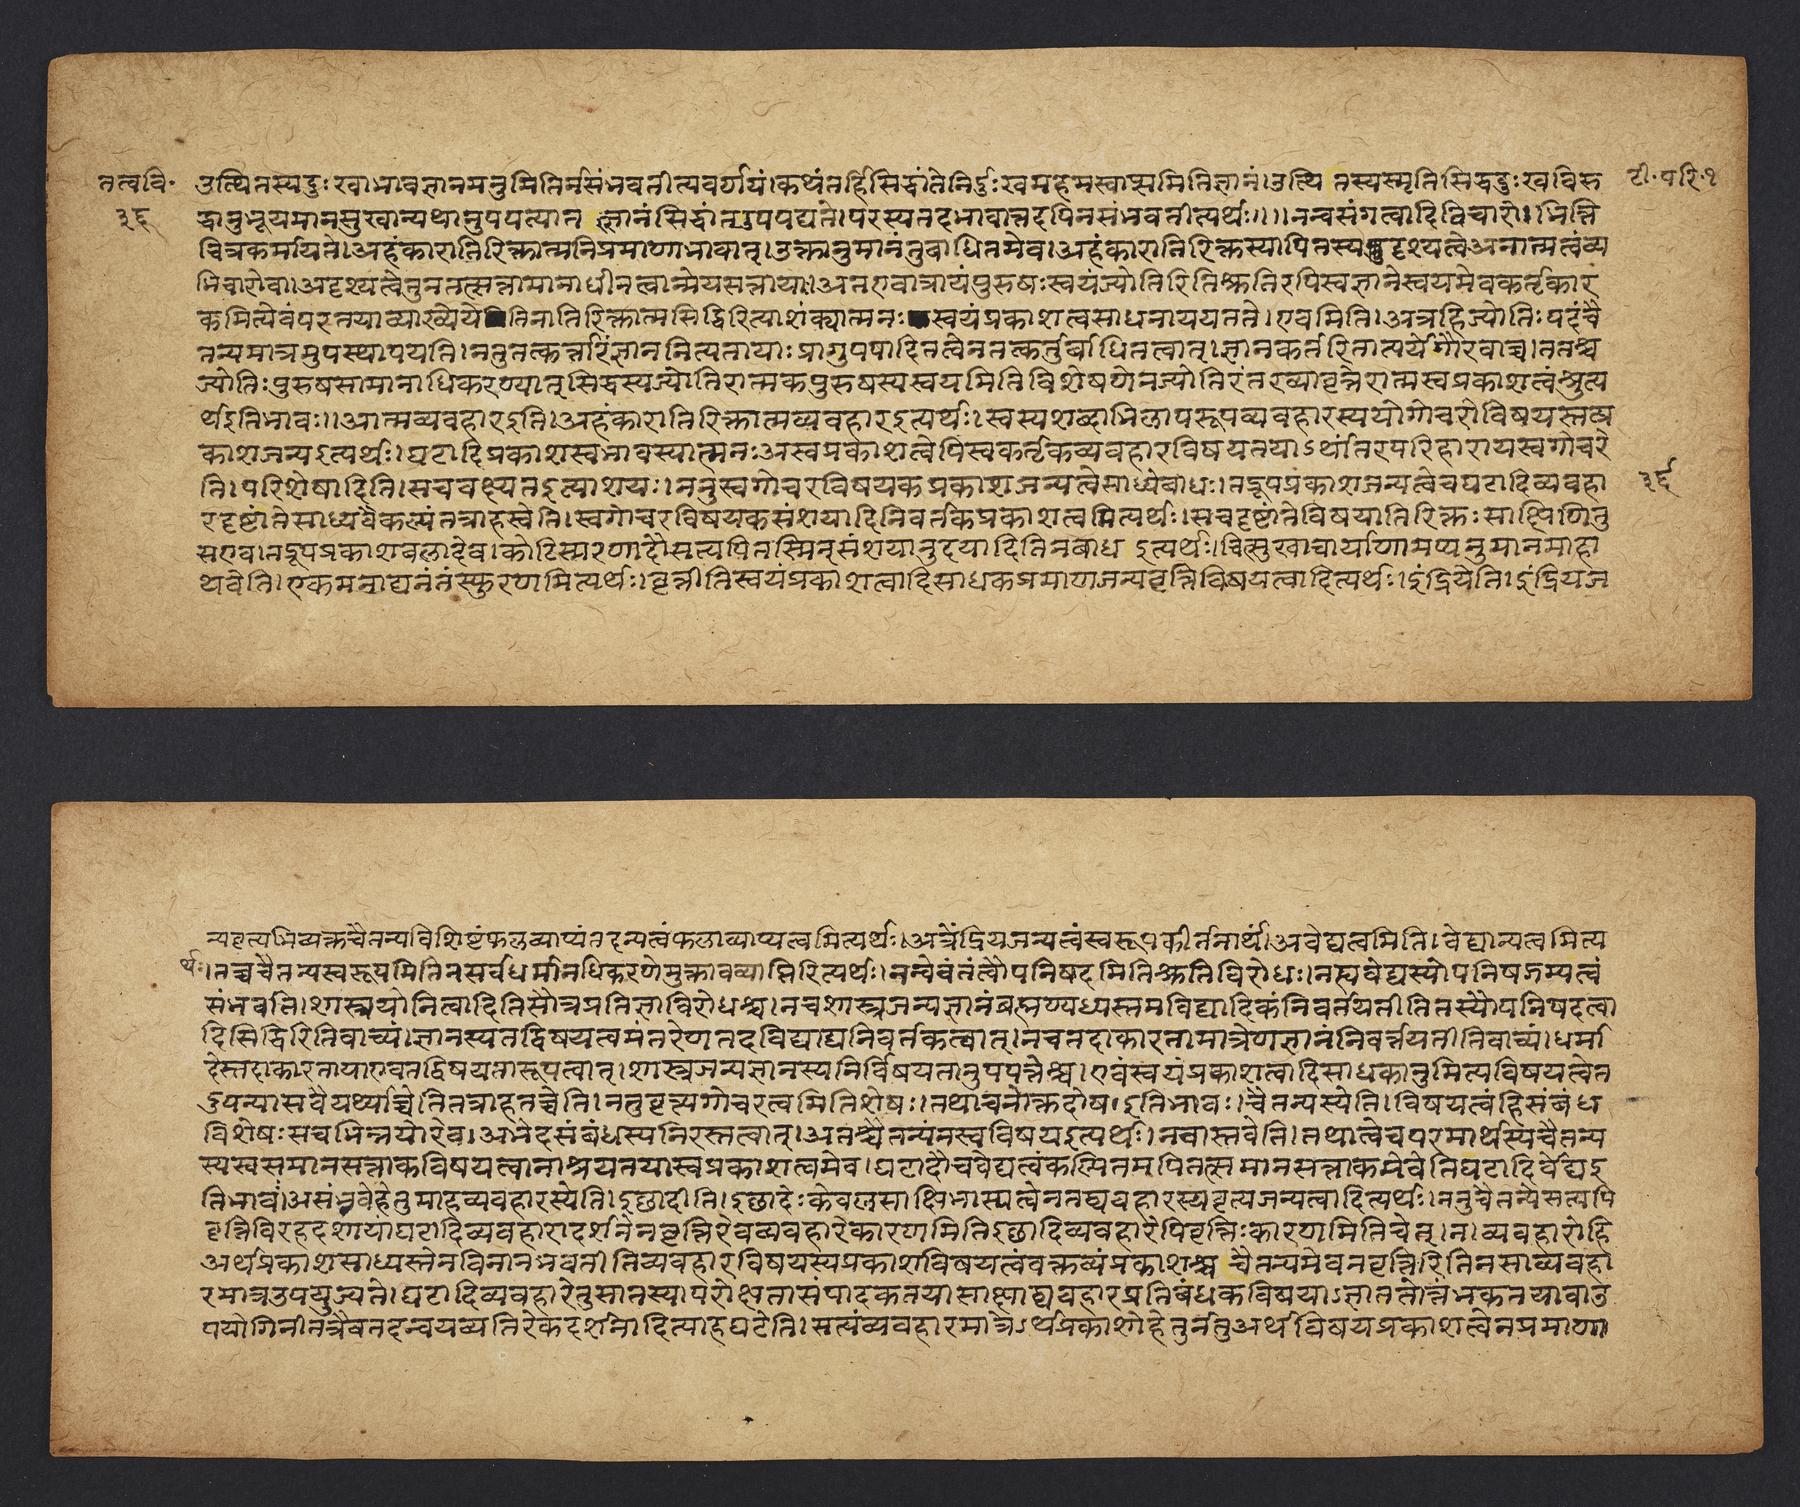 तत्ववि॰ उत्थितस्यदुःखाभावज्ञानमनुमितिर्नसंभवतीत्यवर्ण्यं।कथंतर्हिसिद्धांतेनिर्दुःखमहमस्वाप्समितिज्ञानं।उत्थि तस्यस्मृतिसिद्धदुःखविरु टी॰परि॰१
३६ द्धानुभूयमानसुखान्यथानुपपत्यात ज्ञानंसिद्धांतउपपद्यते।परस्यतदभावान्नदपिनसंभवतीत्यर्थः।।।नन्वसंगत्वादिविचारो।भित्ति
चित्रकर्मायते।अहंकारातिरिक्तात्मनिप्रमाणाभावात्।उक्तानुमानंतुबाधितमेव।अहंकारातिरिक्तस्यापितस्यदृश्यत्वेअनात्मत्वंव्य
भिचारोवा।अदृश्यत्वेतुनतत्सत्तामानाधीनत्वान्मेयसत्तायाः।अतएवात्रायंपुरुषःस्वयंज्योतिरितिश्रुतिरपिस्वज्ञानेस्वयमेवकर्तृकार
कमित्येवंपरतयाव्याख्येयेतिनातिरिक्तात्मसिद्धिरित्याशंक्यात्मनःस्वयंप्रकाशत्वसाधनाययतते।एवमिति।अत्रहिज्योतिःपदंचै
तन्यमात्रमुपस्थापयति।नतुतत्कर्त्तारंज्ञाननित्यतायाःप्रागुपपादितत्वेनतत्कर्तुर्बाधितत्वात्।ज्ञानकर्तरितात्पर्येगौरवाच्च।ततश्च
ज्योतिःपुरुषसामानाधिकरण्यात्सिद्धस्यज्योतिरात्मकपुरुषस्यस्वयमितिविशेषणेनज्योतिरंतरव्यावृत्तेरात्मस्वप्रकाशत्वंश्रुत्य
र्थइतिभावः।।आत्मव्यवहारइति।अहंकारातिरिक्तात्मव्यवहारइत्यर्थः।स्वस्यशब्दाभिलापरूपव्यवहारस्ययोगोचरोविषयस्तत्प्र
काशजन्यइत्यर्थः।घटादिप्रकाशस्वभावस्यात्मनःअस्वप्रकाशत्वेपिस्वकर्तृकव्यवहारविषयतयाऽर्थांतरपरिहारायस्वगोचरे
ति।परिशेषादिति।सचवक्ष्यतइत्याशयः।ननुस्वगोचरविषयकप्रकाशजन्यत्वेसाध्येबाधः।तद्रूपप्रकाशजन्यत्वेचघटादिव्यवहा ३६
रदृष्टांतेसाध्यवैकल्यंतत्राहस्वेति।स्वगोचरविषयकसंशयादिनिवर्तकप्रकाशत्वमित्यर्थः।सचदृष्टांतेविषयातिरिक्तःसाक्षिणितु
सएव।तद्रूपप्रकाशबलादेव।कोटिस्मरणादौसत्यपितस्मिन्संशयानुदयादितिनबाध इत्यर्थः।चित्सुखाचार्याणामप्यनुमानमाहा
थवेति।एकमनाद्यनंतंस्फुरणमित्यर्थः।वृत्तीतिस्वयंप्रकाशत्वादिसाधकप्रमाणजन्यवृत्तिविषयत्वादित्यर्थः।इंद्रियेति।इंद्रियज
न्यवृत्त्यभिव्यक्तचैतन्यविशिष्टंफलव्याप्यंतदन्यत्वंफलाव्याप्यत्वमित्यर्थः।अत्रेंद्रियजन्यत्वंस्वरूपकीर्तनार्थं।अवेद्यत्वमिति।वेद्यान्यत्वमित्य
र्थः।तच्चचैतन्यस्वरूपमितिनसर्वधर्मानधिकरणेमुक्तावव्याप्तिरित्यर्थः।नन्वेवंतंत्वौपनिषदमितिश्रुतिविरोधः।नह्यवेद्यस्योपनिषज्गम्यत्वं
संभवति।शास्त्रयोनित्वादितिसौत्रप्रतिज्ञाविरोधश्च।नचशास्त्रजन्यज्ञानंब्रह्मण्यध्यस्तमविद्यादिकंनिवर्तयतीतितस्यौपनिषदत्वा
दिसिद्धिरितिवाच्यं।ज्ञानस्यतद्विषयत्वमंतरेणतदविद्याद्यनिवर्तकत्वात्।नचतदाकारतामात्रेणज्ञानंनिवर्त्तयतीतिवाच्यं।धर्मा
देस्तदाकारतायाएवतद्विषयतारूपत्वात्।शास्त्रजन्यज्ञानस्यनिर्विषयतानुपपत्तेश्च।एवंस्वयंप्रकाशत्वादिसाधकानुमित्यविषयत्वेत
दुपन्यासवैयर्थ्याच्चेतितत्राहतच्चेति।नतुवृत्त्यगोचरत्वमितिशेषः।तथाचनोक्तदोष।इतिभावः।चैतन्यस्येति।विषयत्वंहिसंबंध
विशेषःसचभिन्नयोरेव।अभेदसंबंधस्यनिरस्तत्वात्।अतश्चैतन्यंनस्वविषयइत्यर्थः।नवास्तवेति।तथात्वेचपरमार्थस्यचैतन्य
स्यस्वसमानसत्ताकविषयत्वानाश्रयतयास्वप्रकाशत्वमेव।घटादौचवेद्यत्वंकल्पितमपितत्समानसत्ताकमेवेतिघटादिर्वेद्यइ
तिभावः।असंभवेहेतुमाहव्यवहारस्येति।इच्छादीति।इच्छादेःकेवलसाक्षिभास्यत्वेनतद्व्यवहारस्यवृत्यजन्यत्वादित्यर्थः।ननुचैतन्येसत्यपि
वृत्तिविरहदशायांघटादिव्यवहारादर्शनेनवृत्तिरेवव्यवहारेकारणमितिइच्छादिव्यवहारेपिवृत्तिःकारणमितिचेत्।न।व्यवहारोहि
अर्थप्रकाशसाध्यस्तेनविनानभवतीतिव्यवहारविषयस्यप्रकाशविषयत्वंवक्तव्यंप्रकाशश्च चैतन्यमेवनवृत्तिरितिनसाव्यवहा
रमात्रउपयुज्यते।घटादिव्यवहारेतुसातस्यापरोक्षतासंपादकतयासाक्षाद्व्यवहारप्रतिबंधकविषयाऽज्ञाननिवर्तकतयावाउ
पयोगिनीतत्रैवतदन्वयव्यतिरेकदर्शनादित्याहघटेति।सत्यंव्यवहारमात्रेऽर्थप्रकाशोहेतुर्नतुअर्थविषयप्रकाशत्वेनप्रमाणा